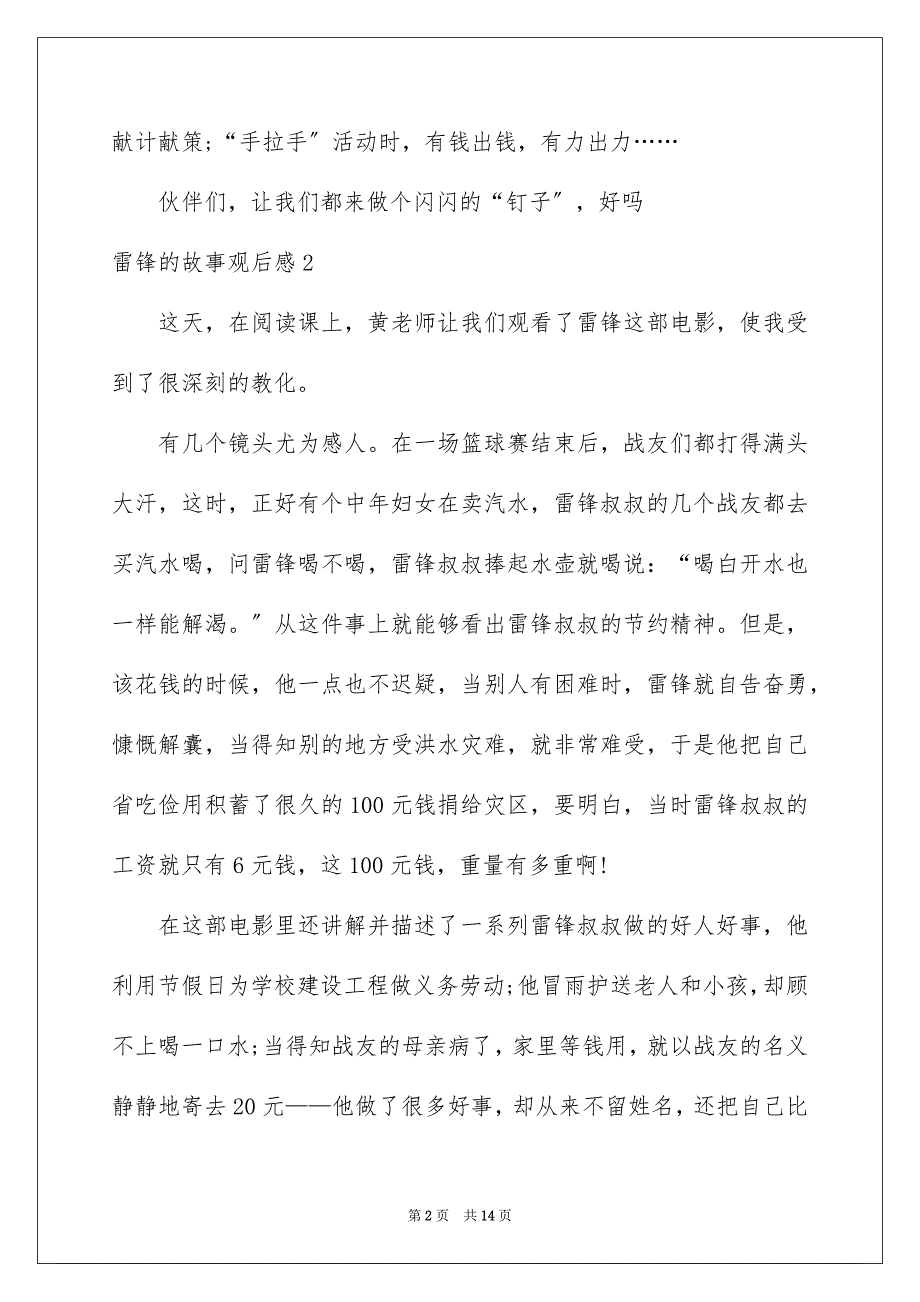 献计献策;“手拉手〞活动时，有钱出钱，有力出力……
伙伴们，让我们都来做个闪闪的“钉子〞，好吗
雷锋的故事观后感 2
这天，在阅读课上，黄老师让我们观看了雷锋这部电影，使我受
到了很深刻的教化。
有几个镜头尤为感人。在一场篮球赛结束后，战友们都打得满头
大汗，这时，正好有个中年妇女在卖汽水，雷锋叔叔的几个战友都去
买汽水喝，问雷锋喝不喝，雷锋叔叔捧起水壶就喝说：“喝白开水也
一样能解渴。〞从这件事上就能够看出雷锋叔叔的节约精神。但是，
该花钱的时候，他一点也不迟疑，当别人有困难时，雷锋就自告奋勇，
慷慨解囊，当得知别的地方受洪水灾难，就非常难受，于是他把自己
省吃俭用积蓄了很久的 100 元钱捐给灾区，要明白，当时雷锋叔叔的
工资就只有 6 元钱，这 100 元钱，重量有多重啊!
在这部电影里还讲解并描述了一系列雷锋叔叔做的好人好事，他
利用节假日为学校建设工程做义务劳动;他冒雨护送老人和小孩,却顾
不上喝一口水;当得知战友的母亲病了，家里等钱用，就以战友的名义
静静地寄去 20 元——他做了很多好事，却从来不留姓名，还把自己比
第 2 页 共 14 页